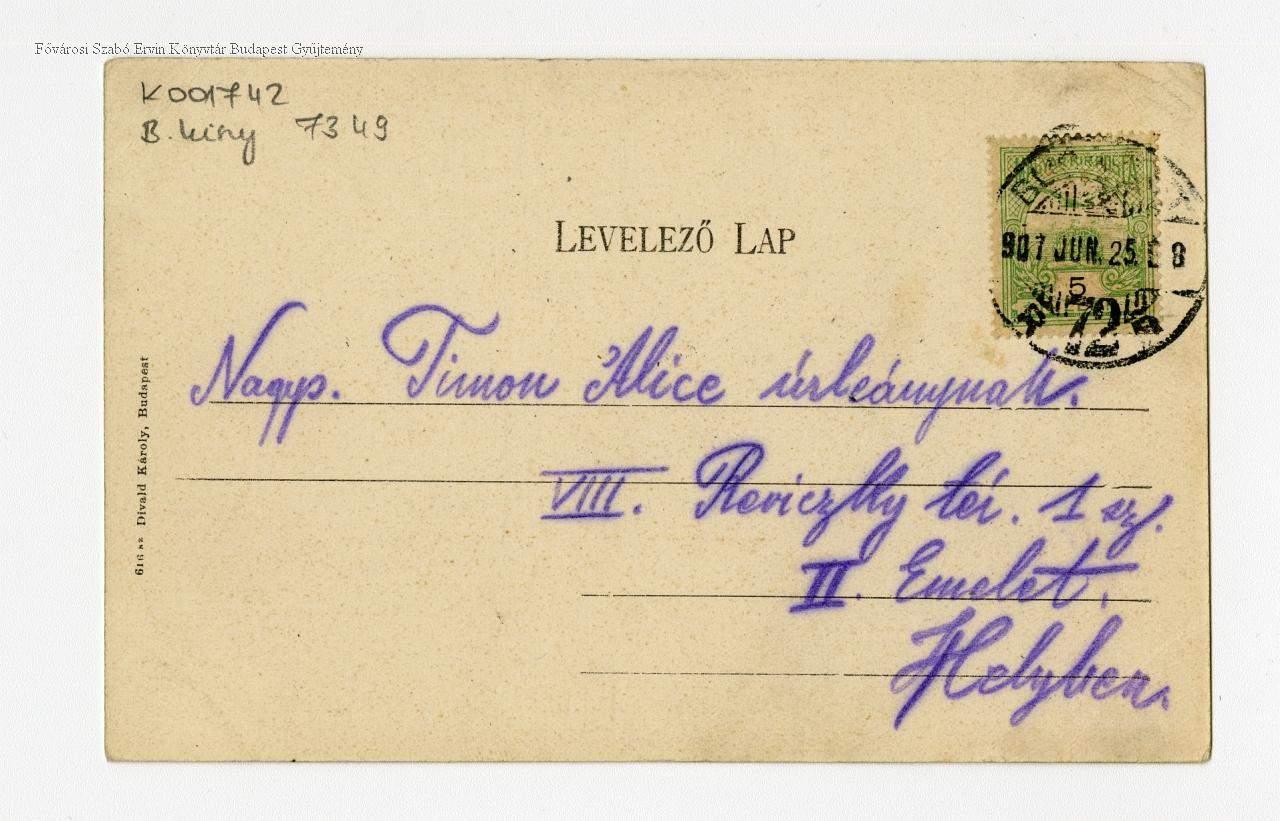 Fővárosi Szabó Ervin Könyvtár Budapest Gyűjtemény
K001742
B. 7349
LEVELEZŐ LAP
907 JUN. 25. 8
5
72
Nagys. Timon Alice úrleánynak.
VIII. Reviczky tér. 1 sz.
II. Emelet.
Helyben.
616 sz Divald Károly, Budapest